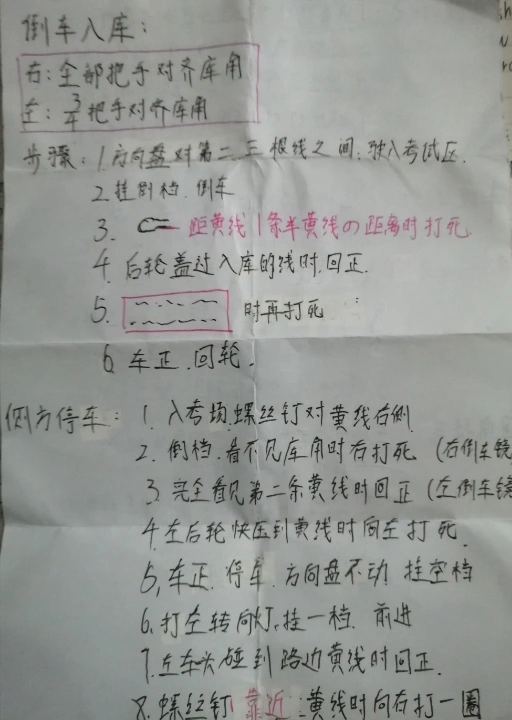 倒车入库:
右:全部把手对齐库角
左:3/4把手对齐库角
步骤:1.方向盘对第二三根线之间.驶入考试区.
2.挂倒档.倒车
3. 距黄线1条半黄线の距离时打死
4.后轮盖过入库的线时.回正.
5. 时再打死
6.车正.回轮.
侧方停车:1.入考场.螺丝钉对黄线右侧.
2.倒档.看不见库角时右打死(右倒车镜
3.完全看见第二条黄线时回正(左倒车镜
4.左后轮快压到黄线时向左打死.
5.车正.停车.方向盘不动.挂空档
6.打左转向灯.挂一档.前进
7.左车头碰到路边黄线时回正.
8.螺丝钉靠近黄线时向右打一圈